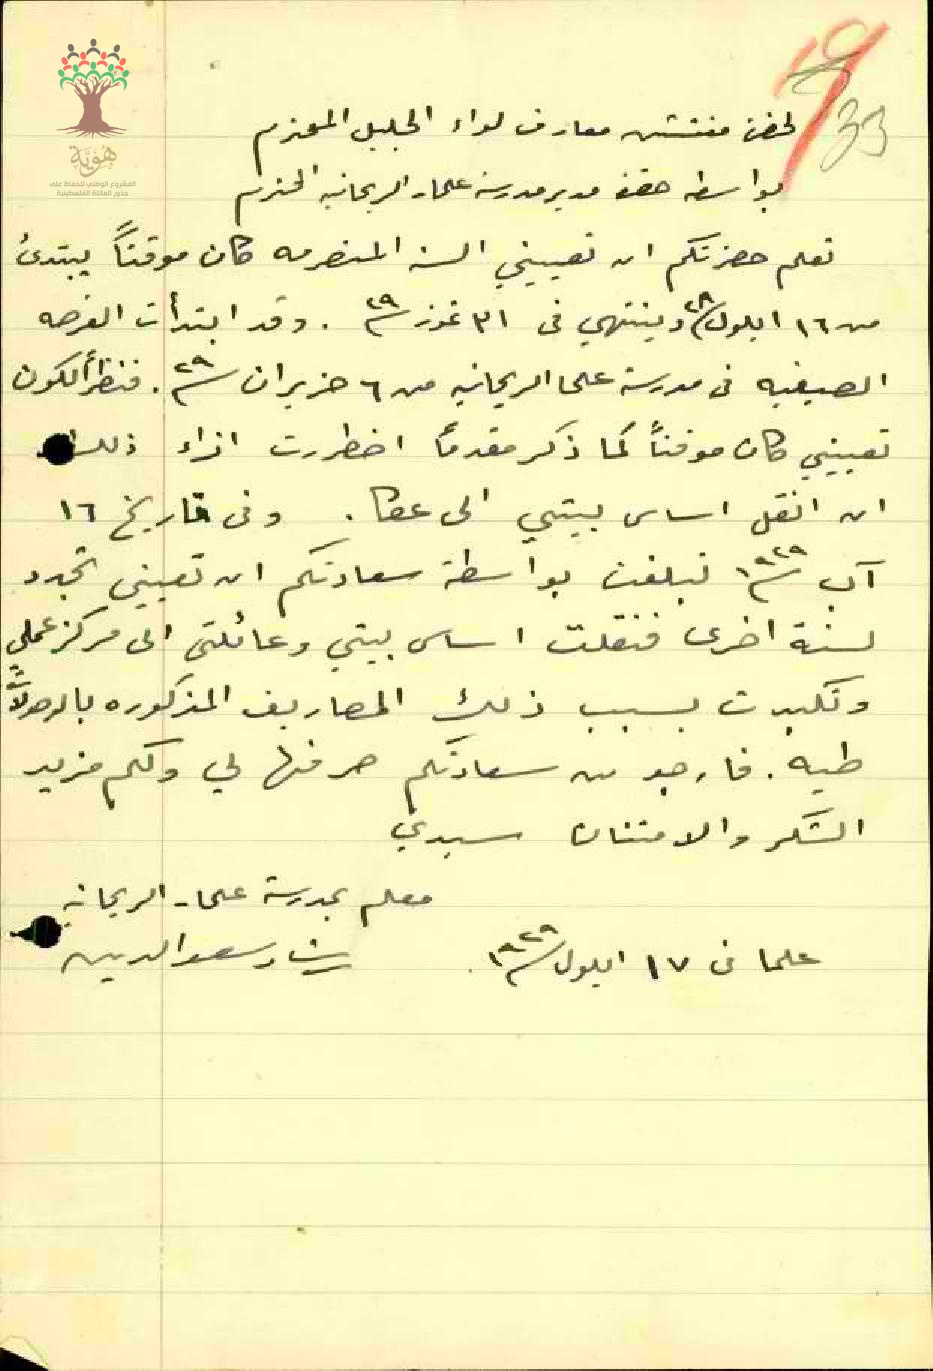 19
33
هوية
المشروع الوطني للحفاظ على
جذور العائلة الفلسطينية
لحضرة مفتش معارف لواء الجليل المحترم
بواسطه حضرة مدير مدرسة علما الريحانيه المحترم
تعلم حضرتكم ان تعييني السنه المنصرمه كان موقتاً يبتدئ
من ١٦ ايلول سنة ٢٨ وينتهي في ٣١ تموز سنة ٢٩ . وقد ابتدأت الفرصه
الصيفيه في مدرسة علما الريحانيه من ٦ حزيران سنة ٢٩ . فنظراً لكون
تعييني كان موقتاً كما ذكر مقدماً اضطررت ازاء ذلك
ان انقل اساس بيتي الى عكا . وفي تاريخ ١٦
آب سنة ١٩٢٩ تبلغت بواسطة سعادتكم ان تعييني تجدد
لسنة اخرى فنقلت اساس بيتي وعائلتي الى مركز عملي
وتكبدت بسبب ذلك المصاريف المذكوره بالوصولات
طيه . فارجو من سعادتكم صرفها لي ولكم مزيد
الشكر والامتنان سيدي
معلم بمدرسة علما الريحانيه
علما في ١٧ ايلول سنة ١٩٢٩ . رشاد سعد الدين